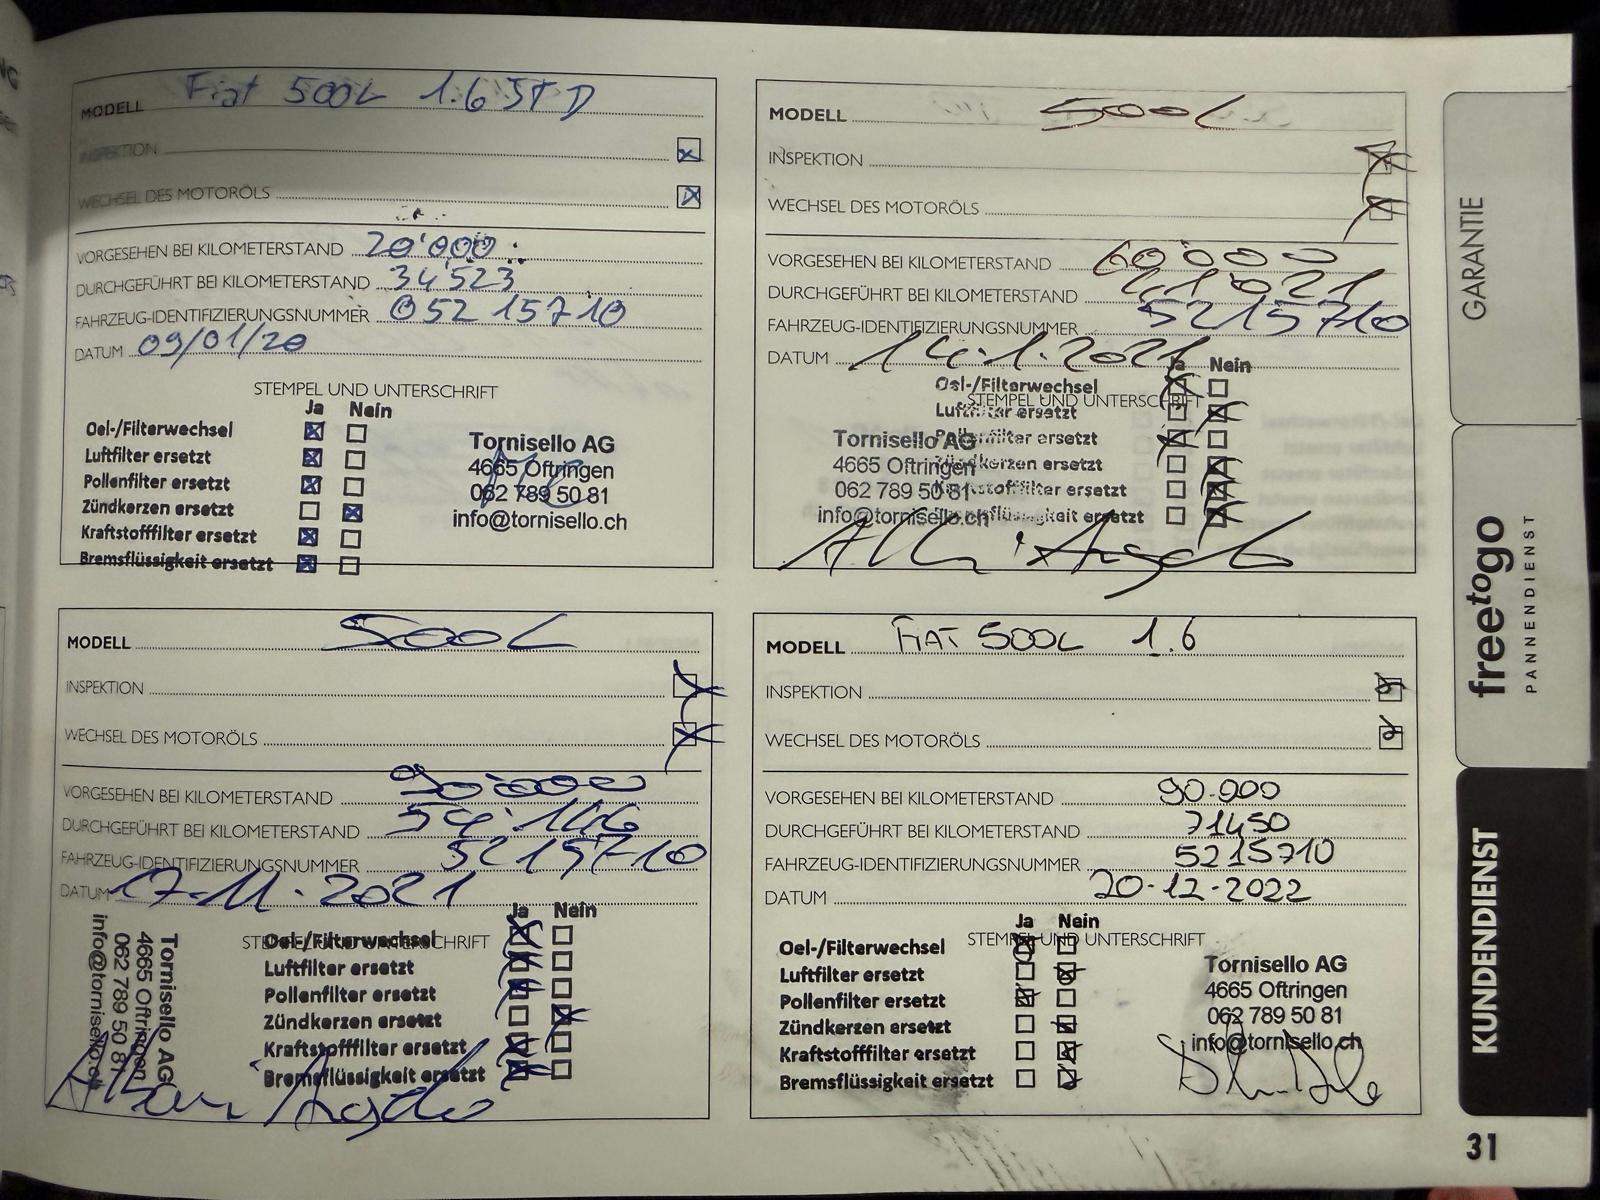 MODELL Fiat 500L 1.6 JTD
INSPEKTION
WECHSEL DES MOTORÖLS
VORGESEHEN BEI KILOMETERSTAND 20'000
DURCHGEFÜHRT BEI KILOMETERSTAND 34'523
FAHRZEUG-IDENTIFIZIERUNGSNUMMER 052 15710
DATUM 09/01/20
STEMPEL UND UNTERSCHRIFT
Ja Nein
Oel-/Filterwechsel
Luftfilter ersetzt
Pollenfilter ersetzt
Zündkerzen ersetzt
Kraftstofffilter ersetzt
Bremsflüssigkeit ersetzt
Tornisello AG
4665 Oftringen
062 789 50 81
info@tornisello.ch
MODELL 500L
INSPEKTION
WECHSEL DES MOTORÖLS
VORGESEHEN BEI KILOMETERSTAND 60'000
DURCHGEFÜHRT BEI KILOMETERSTAND
FAHRZEUG-IDENTIFIZIERUNGSNUMMER 5215710
DATUM 14.1.2021
STEMPEL UND UNTERSCHRIFT
Ja Nein
Oel-/Filterwechsel
Luftfilter ersetzt
Pollenfilter ersetzt
Zündkerzen ersetzt
Kraftstofffilter ersetzt
Bremsflüssigkeit ersetzt
Tornisello AG
4665 Oftringen
062 789 50 81
info@tornisello.ch
MODELL 500L
INSPEKTION
WECHSEL DES MOTORÖLS
VORGESEHEN BEI KILOMETERSTAND 90'000
DURCHGEFÜHRT BEI KILOMETERSTAND
FAHRZEUG-IDENTIFIZIERUNGSNUMMER 5215710
DATUM 17.11.2021
STEMPEL UND UNTERSCHRIFT
Ja Nein
Oel-/Filterwechsel
Luftfilter ersetzt
Pollenfilter ersetzt
Zündkerzen ersetzt
Kraftstofffilter ersetzt
Bremsflüssigkeit ersetzt
Tornisello AG
4665 Oftringen
062 789 50 81
info@tornisello.ch
MODELL FIAT 500L 1.6
INSPEKTION
WECHSEL DES MOTORÖLS
VORGESEHEN BEI KILOMETERSTAND 90.000
DURCHGEFÜHRT BEI KILOMETERSTAND 71450
FAHRZEUG-IDENTIFIZIERUNGSNUMMER 5215710
DATUM 20-12-2022
STEMPEL UND UNTERSCHRIFT
Ja Nein
Oel-/Filterwechsel
Luftfilter ersetzt
Pollenfilter ersetzt
Zündkerzen ersetzt
Kraftstofffilter ersetzt
Bremsflüssigkeit ersetzt
Tornisello AG
4665 Oftringen
062 789 50 81
info@tornisello.ch
GARANTIE
freetogo
PANNENDIENST
KUNDENDIENST
31